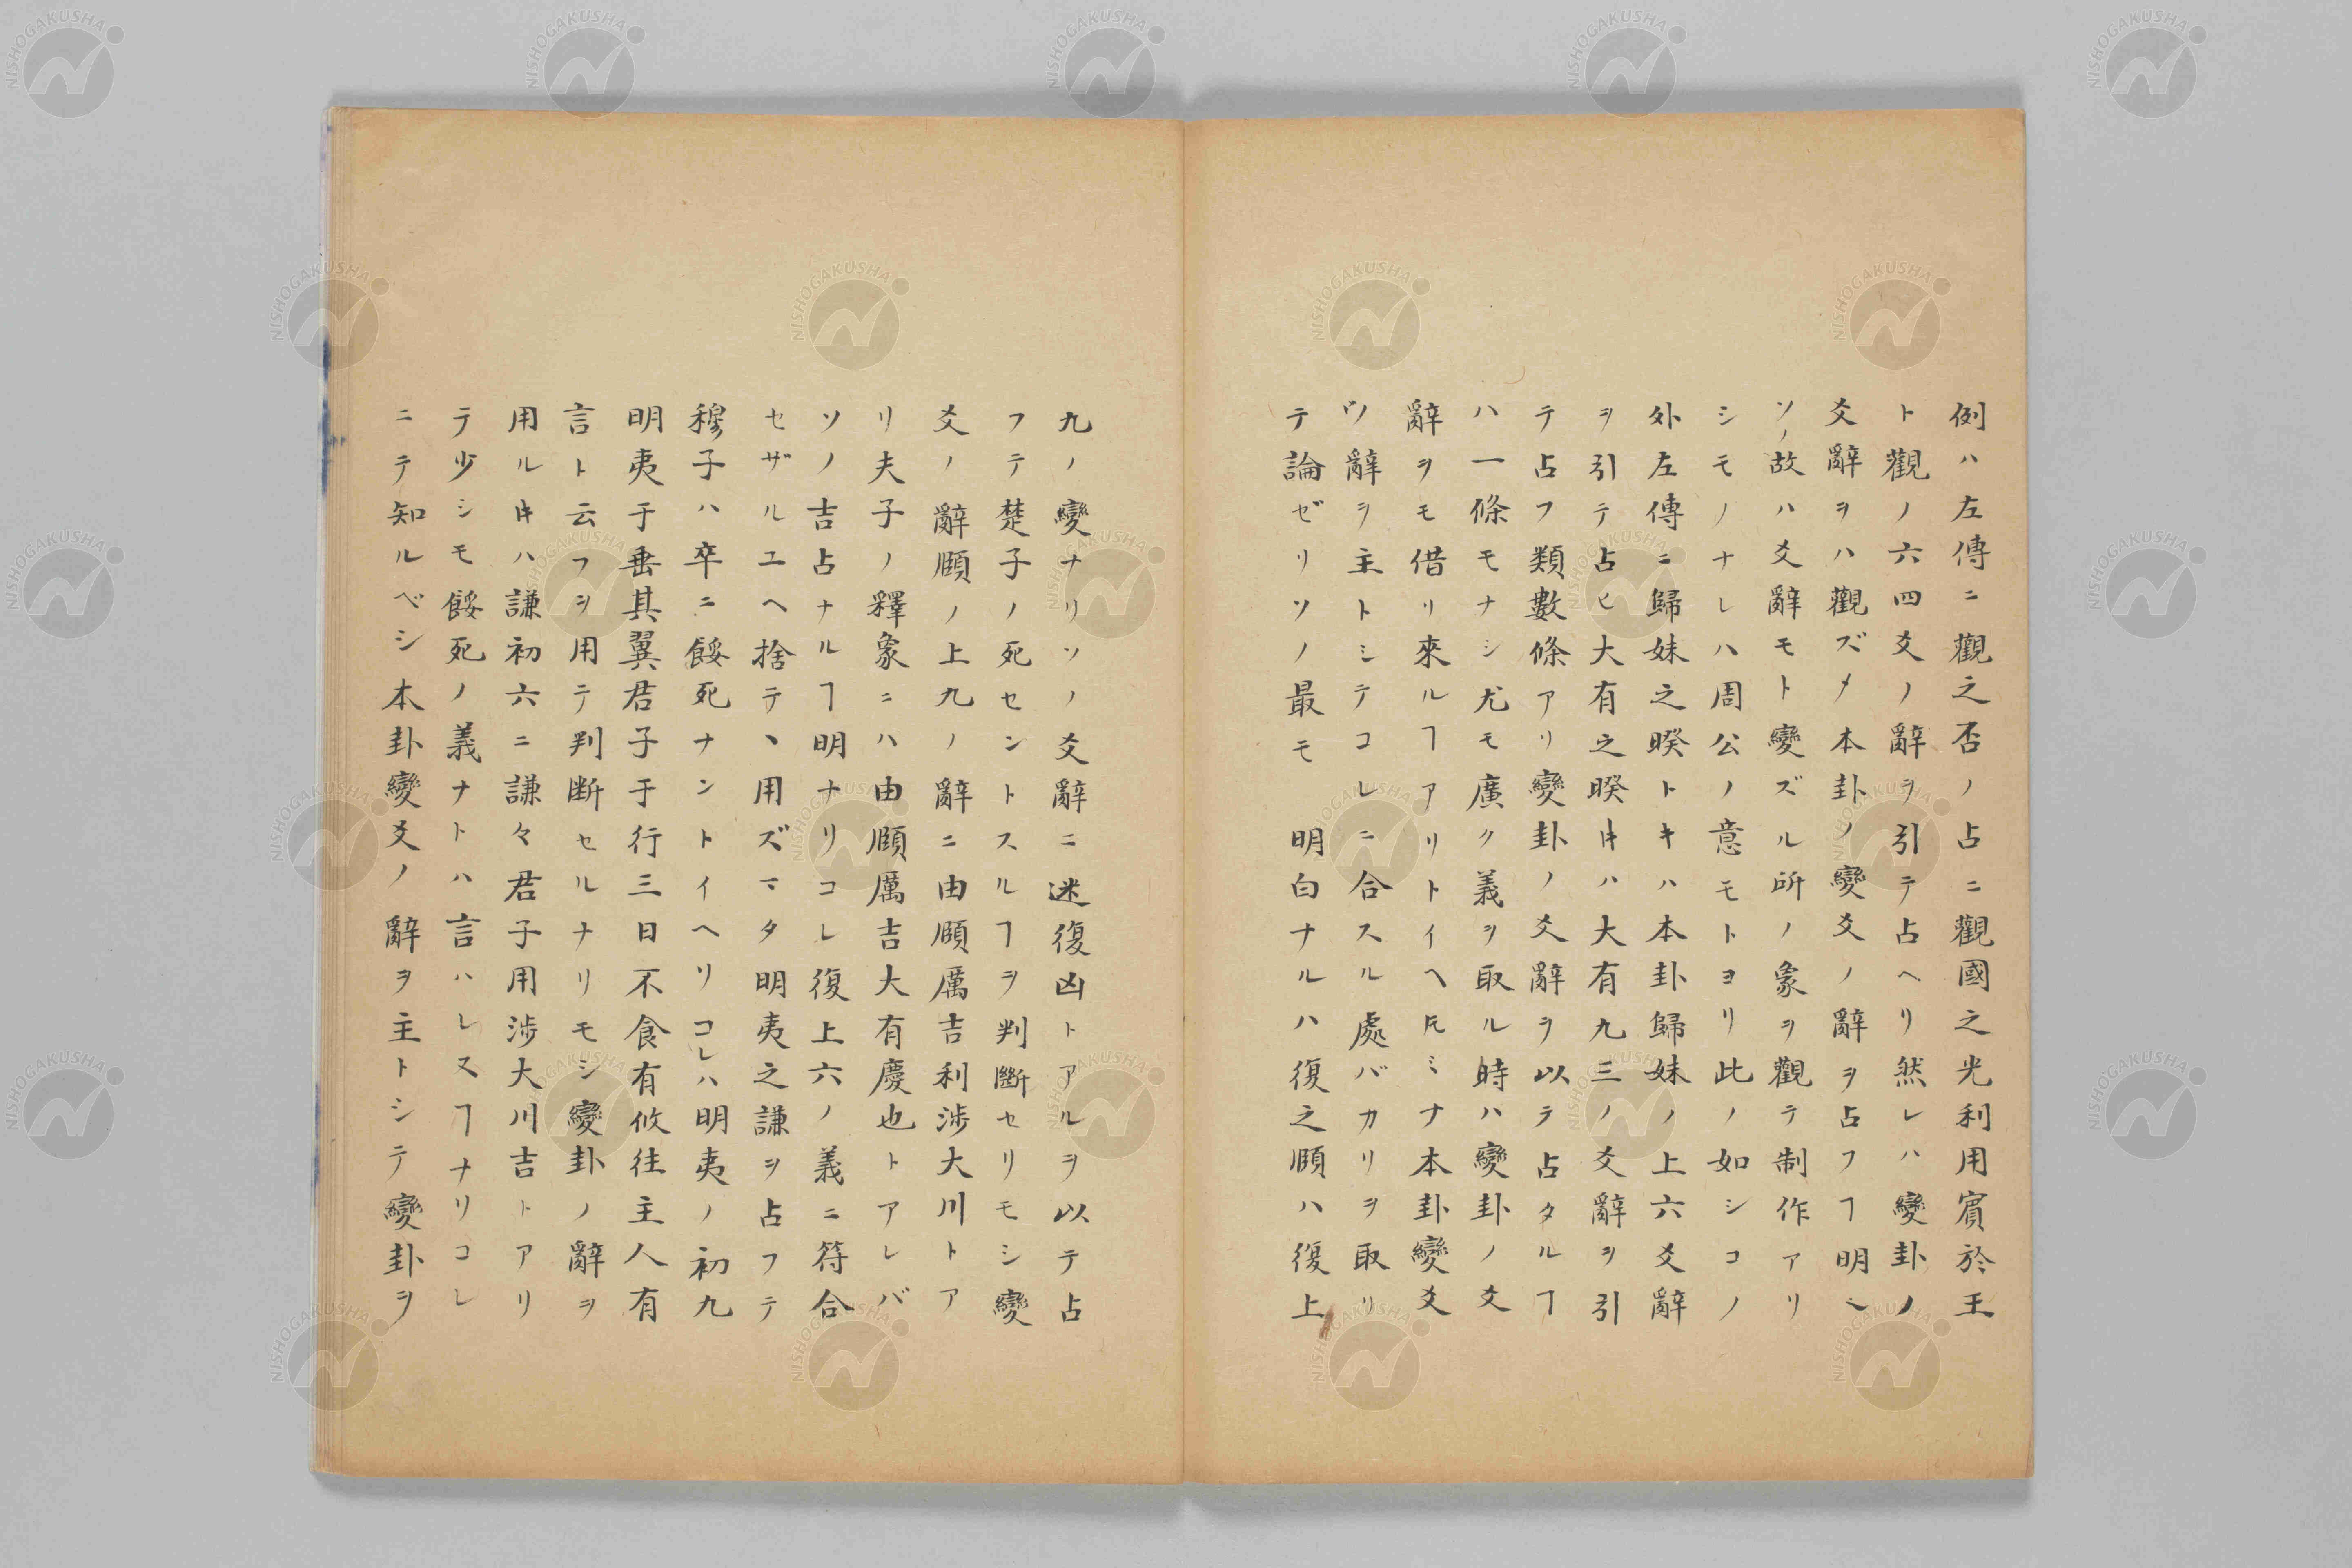 例ハ左傳ニ觀之否ノ占ニ觀國之光利用賓於王
ト觀ノ六四爻ノ辭ヲ引テ占ヘリ然レハ變卦ノ
爻辭ヲハ觀ズ〆本卦ノ變爻ノ辭ヲ占フヿ明シ
ソノ故ハ爻辭モト變ズル所ノ象ヲ觀テ制作アリ
シモノナレハ周公ノ意モトヨリ此ノ如シコノ
外左傳ニ歸妹之睽トキハ本卦歸妹ノ上六爻辭
ヲ引テ占ヒ大有之睽キハ大有九三ノ爻辭ヲ引
テ占フ類數條アリ變卦ノ爻辭ヲ以テ占タルヿ
ハ一條モナシ尤モ廣ク義ヲ取ル時ハ變卦ノ爻
辭ヲモ借リ來ルヿアリトイヘ𪜈ミナ本卦變爻
ノ辭ヲ主トシテコレニ合スル處バカリヲ取リ
テ論ゼリソノ最モ明白ナルハ復之頤ハ復上
九ノ變ナリソノ爻辭ニ迷復凶トアルヲ以テ占
フテ楚子ノ死セントスルヿヲ判斷セリモシ變
爻ノ辭頤ノ上九ノ辭ニ由頤厲吉利涉大川トア
リ夫子ノ釋象ニハ由頤厲吉大有慶也トアレバ
ソノ吉占ナルヿ明ナリコレ復上六ノ義ニ符合
セザルユヘ捨テヽ用ズマタ明夷之謙ヲ占フテ
穆子ハ卒ニ餒死ナントイヘリコレハ明夷ノ初九
明夷于垂其翼君子于行三日不食有攸往主人有
言ト云フヲ用テ判断セルナリモシ變卦ノ辭ヲ
用ルキハ謙初六ニ謙々君子用涉大川吉トアリ
テ少シモ餒死ノ義ナトハ言ハレヌヿナリコレ
ニテ知ルベシ本卦變爻ノ辭ヲ主トシテ變卦ヲ
NISHOGAKUSHA